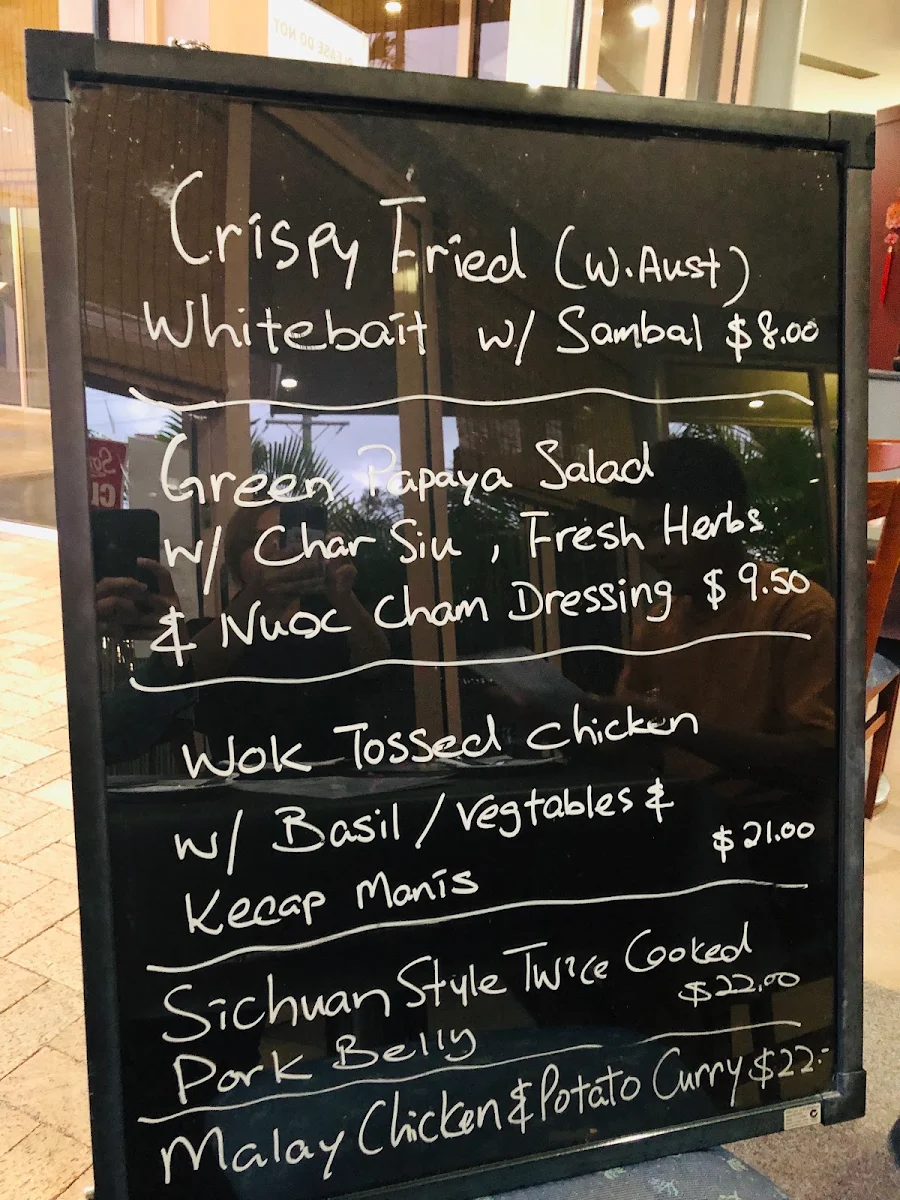 PLEASE DO NOT
Crispy Fried (W.Aust)
Whitebait w/ Sambal $8.00
Green Papaya Salad
w/ Char Siu , Fresh Herbs
& Nuoc Cham Dressing $9.50
Wok Tossed Chicken
w/ Basil / vegtables &
$21.00
Kecap Manis
Sichuan Style Twice Cooked
$22.00
Pork Belly
Malay Chicken & Potato Curry $22.-